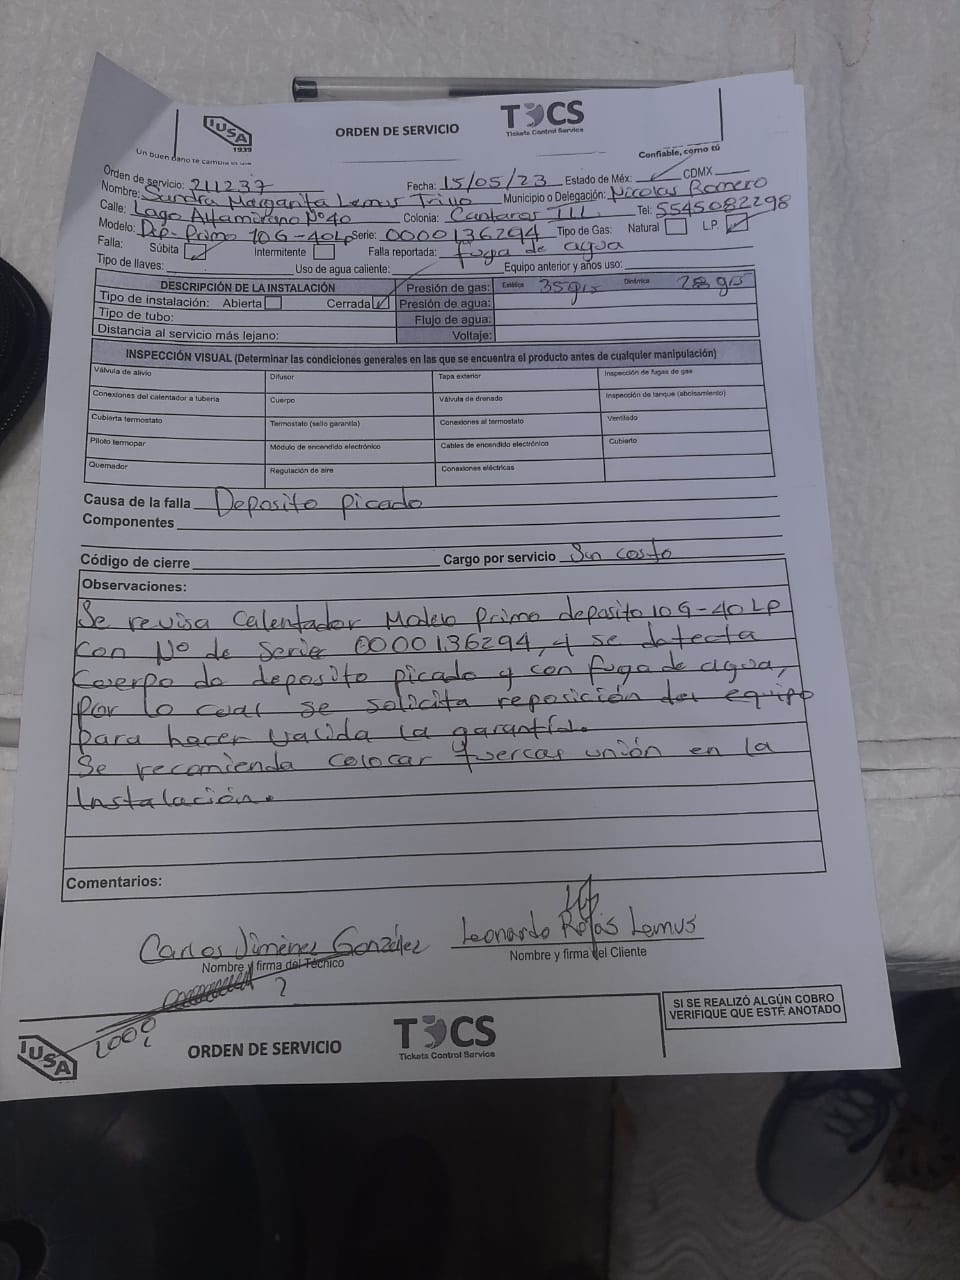 IUSA
1939
Un buen baño te cambia el día
ORDEN DE SERVICIO
TCS
Tickets Control Service
Confiable, como tú
Orden de servicio: 211237 Fecha: 15/05/23 Estado de Méx: ✓ CDMX
Nombre: Sandra Margarita Lemus Trillo Municipio o Delegación: Nicolas Romero
Calle: Lago Altamirano Nº40 Colonia: Cantaros III. Tel: 5545082298
Modelo: Dep- Primo 10G-40LP Serie: 0000136294 Tipo de Gas: Natural L.P. ✓
Falla: Súbita ✓ Intermitente Falla reportada: fuga de agua
Tipo de llaves: Uso de agua caliente: Equipo anterior y años uso:
DESCRIPCIÓN DE LA INSTALACIÓN Presión de gas: Estática 35grs Dinámica 28 grs
Tipo de instalación: Abierta Cerrada ✓ Presión de agua:
Tipo de tubo: Flujo de agua:
Distancia al servicio más lejano: Voltaje:
INSPECCIÓN VISUAL (Determinar las condiciones generales en las que se encuentra el producto antes de cualquier manipulación)
Válvula de alivio Difusor Tapa exterior Inspección de fugas de gas
Conexiones del calentador a tubería Cuerpo Válvula de drenado Inspección de tanque (abolsamiento)
Cubierta termostato Termostato (sello garantía) Conexiones al termostato Ventilado
Piloto termopar Módulo de encendido electrónico Cables de encendido electrónico Cubierto
Quemador Regulación de aire Conexiones eléctricas
Causa de la falla Deposito picado
Componentes
Código de cierre Cargo por servicio Sin costo
Observaciones:
Se revisa Calentador Modelo Primo deposito 10 G-40 LP
con Nº de Serie 0000136294, y se detecta
Cuerpo de deposito picado y con fuga de agua,
por lo cual se solicita reposición del equipo
para hacer valida la garantía.
Se recomienda colocar tuercas unión en la
Instalación.
Comentarios:
Carlos Jiménez González Leonardo Rojas Lemus
Nombre y firma del Técnico Nombre y firma del Cliente
SI SE REALIZÓ ALGÚN COBRO
VERIFIQUE QUE ESTÉ ANOTADO
IUSA
ORDEN DE SERVICIO
TCS
Tickets Control Service